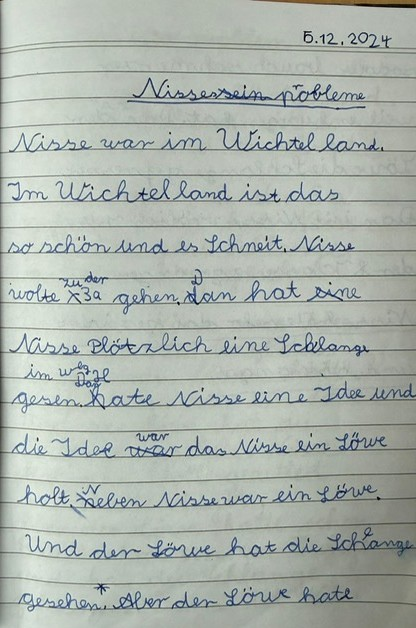 5.12.2024
Nissesein probleme
Nisse war im Wichtelland.
Im Wichtelland ist das
so schön und es Schneit. Nisse
zu der
wolte gehen. Dan hat
Nisse Plötzlich eine Schlange
im weg
gesen. hate Nisse eine Idee und
war
die Idee das Nisse ein Löwe
holt. Neben Nisse war ein Löwe.
Und der Löwe hat die Schlange
gesehen.* Aber der Löwe hate